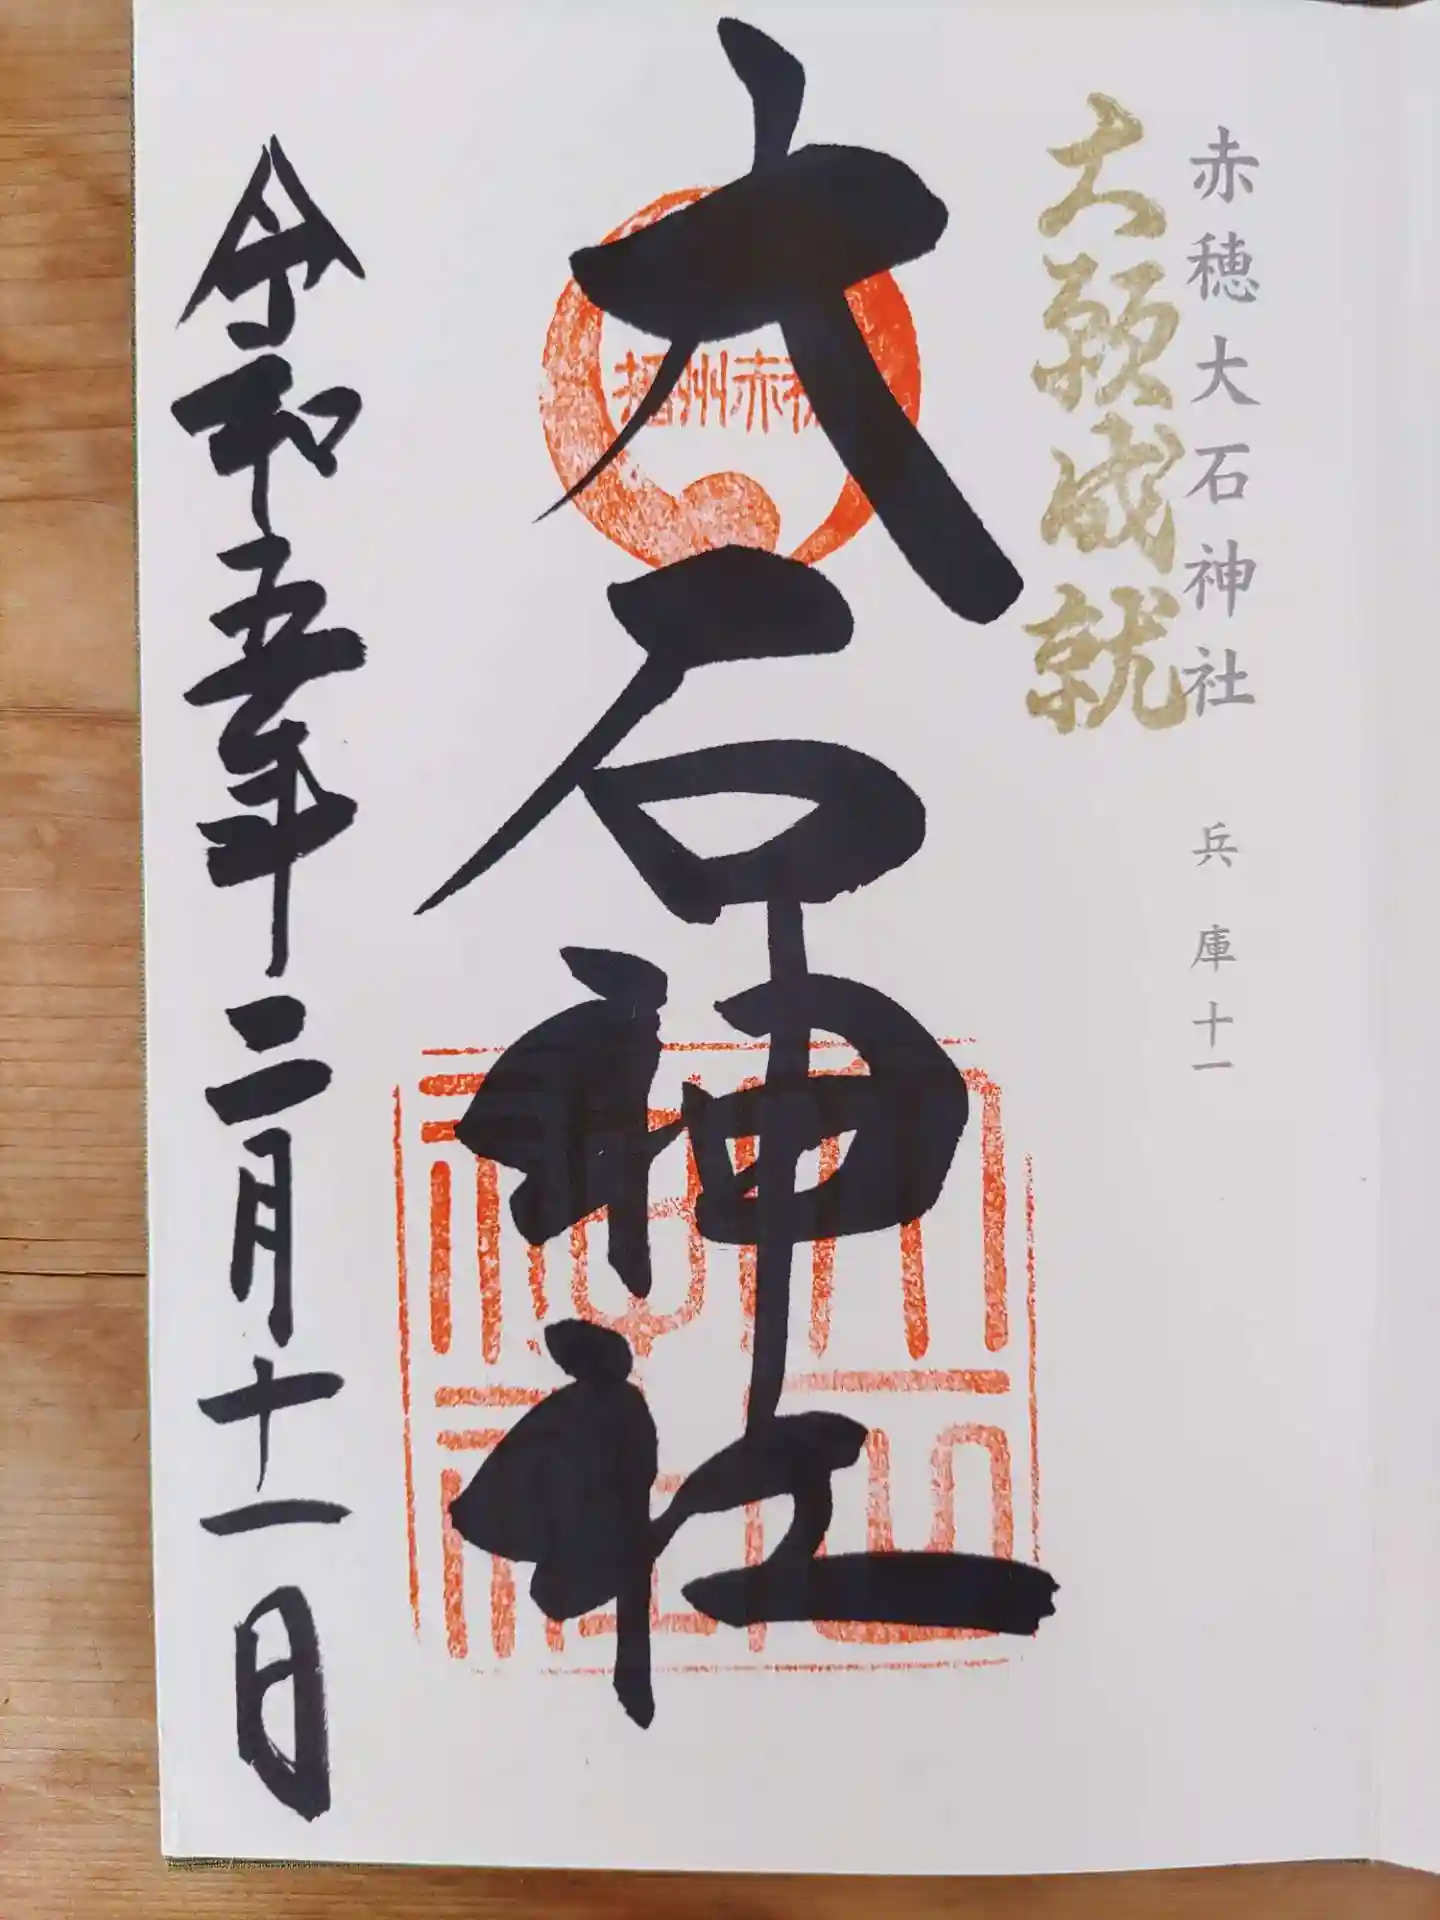 赤穂大石神社 兵庫十一
大願成就
播州赤穂
大石神社
令和五年二月十一日